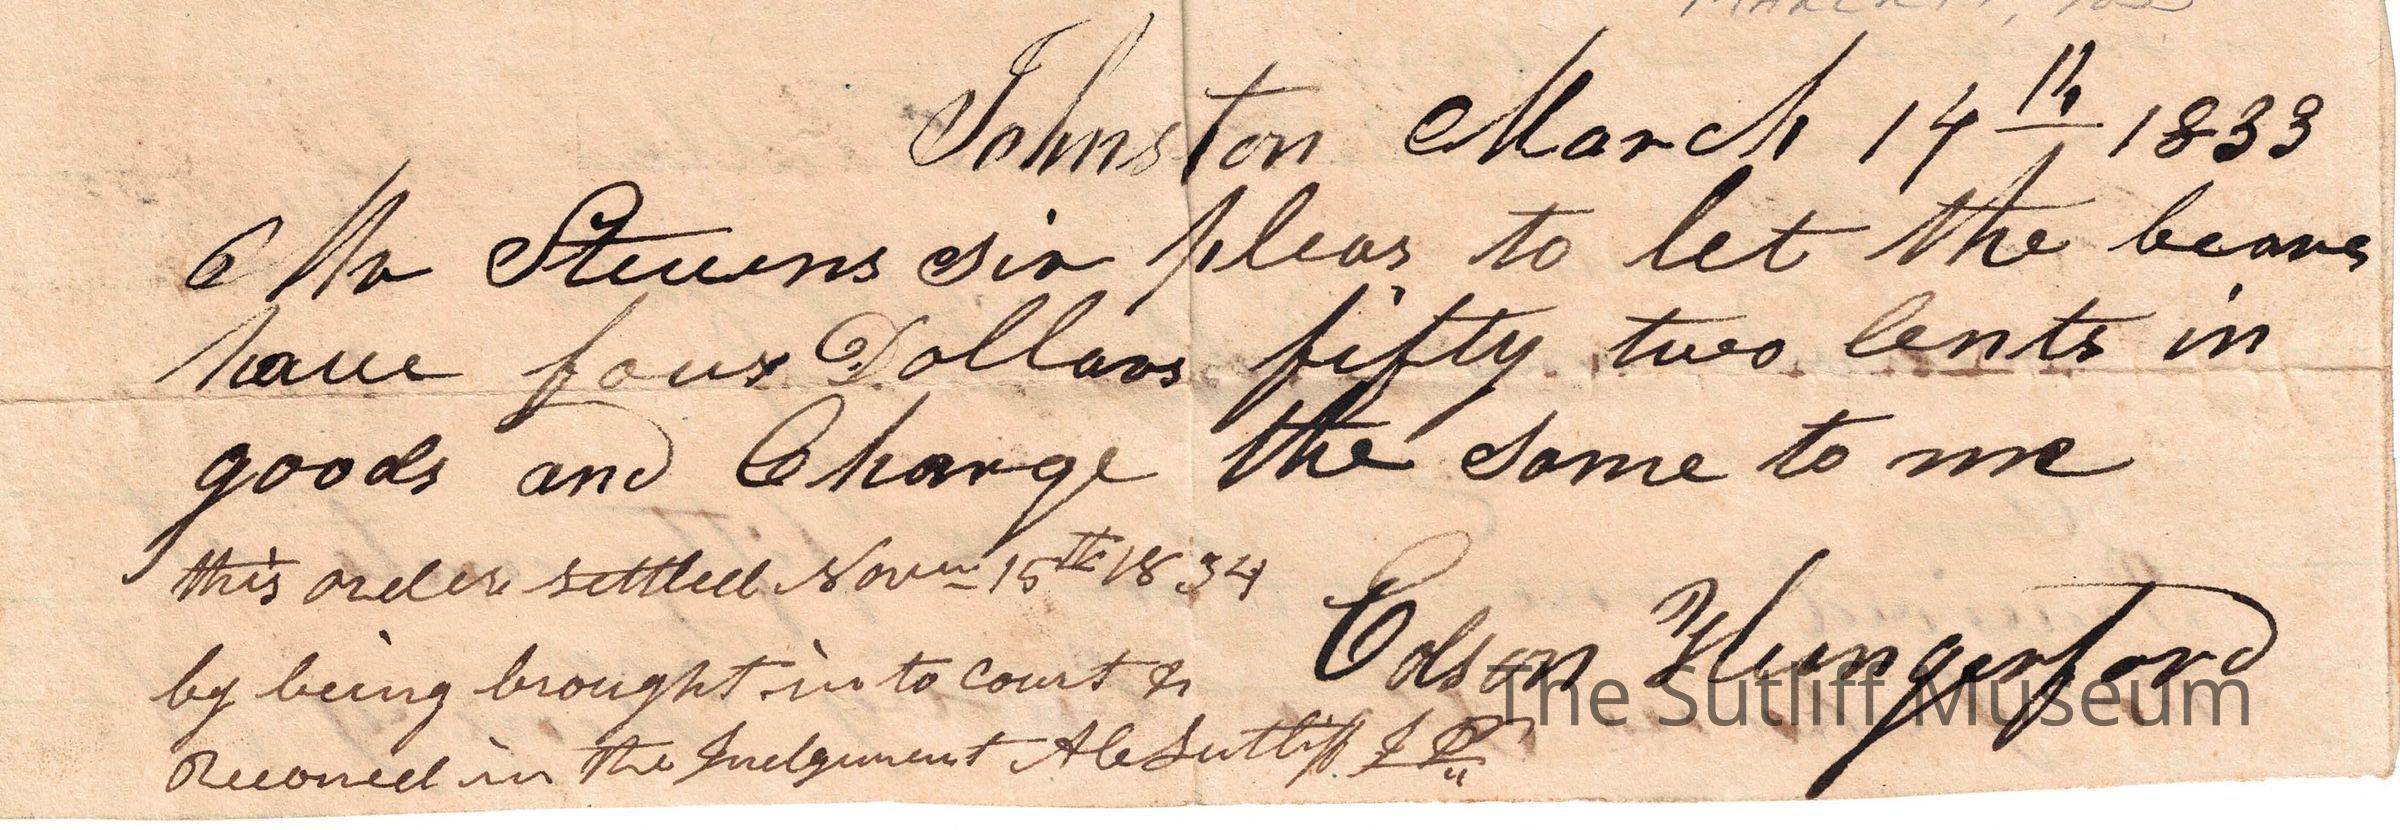 Johnston March 14th 1833
Mr Stevens sir pleas to let the bearer
have four Dollars fifty two Cents in
goods and Charge the same to me
this order settled Novm 15th 1834
Edson Hungerford
by being brought in to court &
Reconed in the Judgement Ab Sutliff J P
The Sutliff Museum